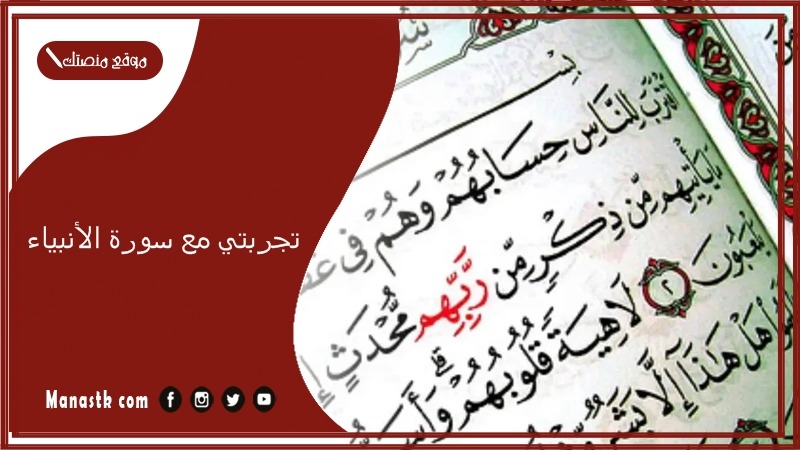 موقع منصتك
تجربتي مع سورة الأنبياء
Manastk com
ٱقْتَرَبَ لِلنَّاسِ حِسَابُهُمْ وَهُمْ فِى
يَأْتِيهِم مِّن ذِكْرٍ مِّن رَّبِّهِم مُّحْدَثٍ
يَلْعَبُونَ ٢ لَاهِيَةً قُلُوبُهُمْ
هَلْ هَٰذَآ إِلَّا بَشَرٌ